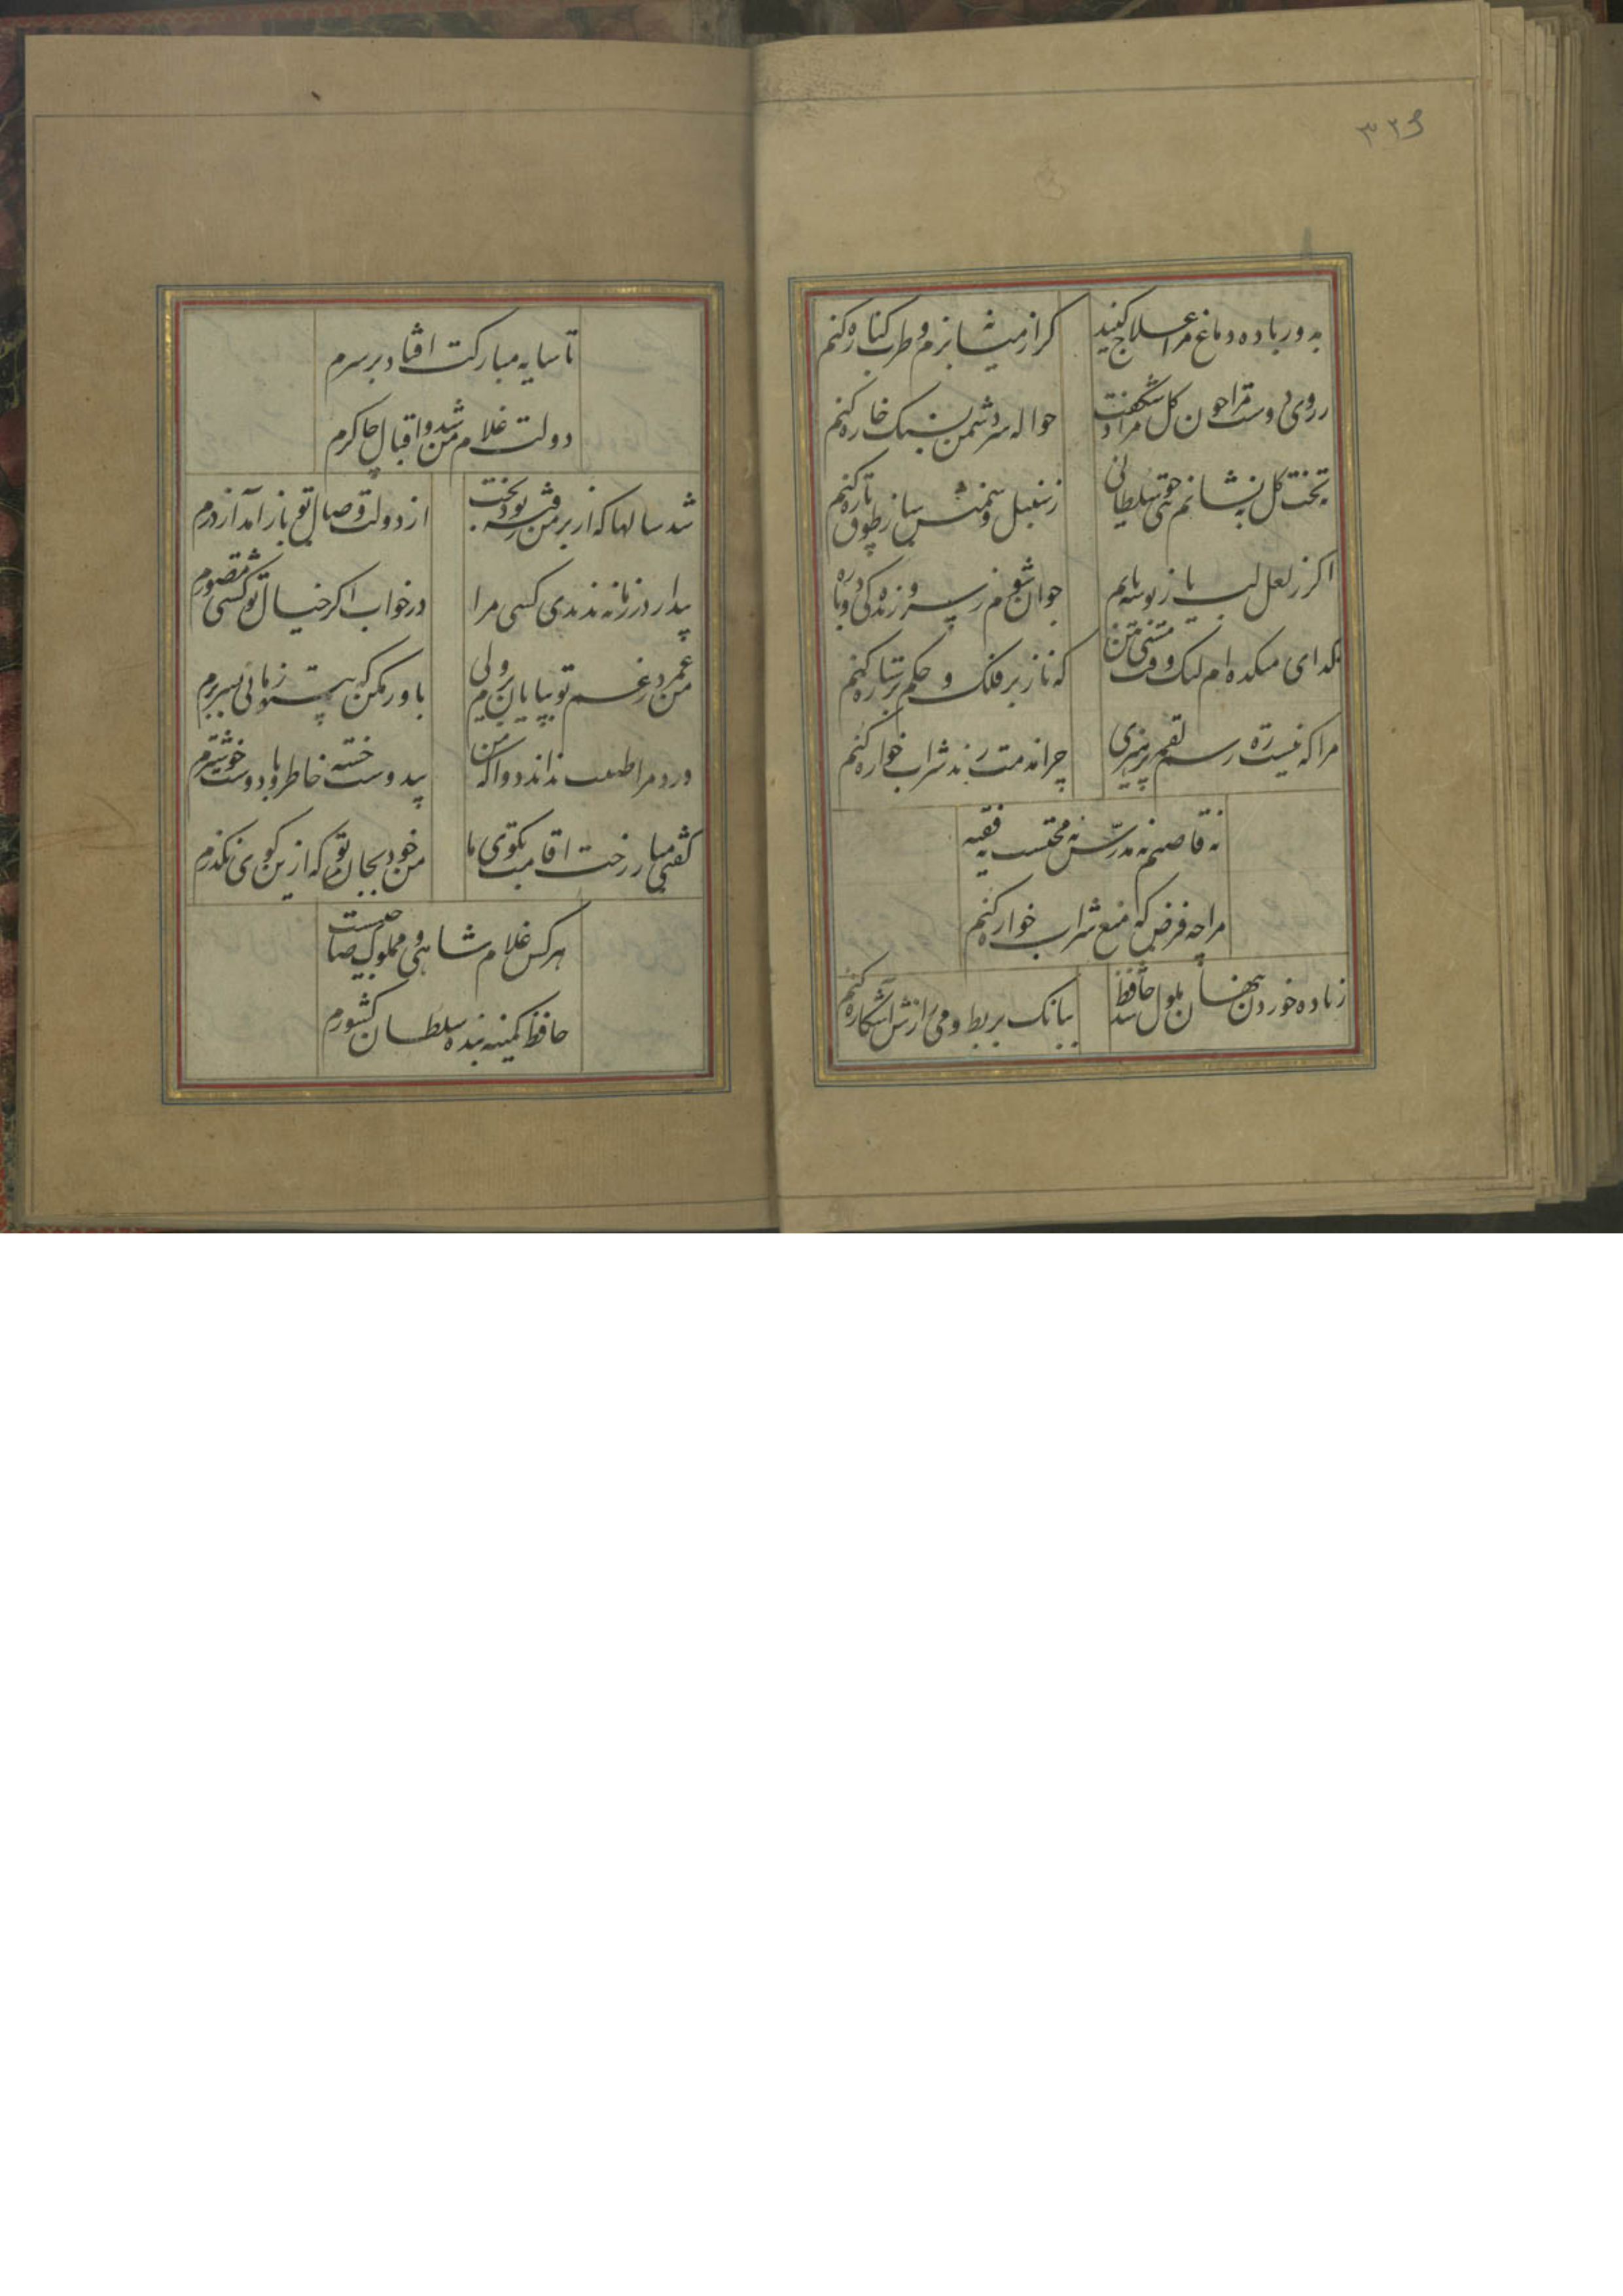 ۳۲۶
به دور باده دماغ مرا علاج کنید
کر از میانه بزم و طرب کناره کنم
ز روی دوست مرا چون کل مراد شکفت
حواله سر دشمن بسنک خاره کنم
بتخت کل بنشانم بتی چو سلطانی
ز سنبل و سمنش ساز طوق و تاره کنم
اکر ز لعل لب یار بوسه یابم
جوان شوم ز سر و زندکی دوباره
کدای میکده ام لیک وقت مستی بین
که ناز بر فلک و حکم بر ستاره کنم
مرا که نیست ره و رسم لقمه پرهیزی
چرا مذمت رند شراب خواره کنم
نه قاضیم نه مدرس نه محتسب نه فقیه
مرا چه فرض که منع شراب خواره کنم
ز باده خوردن پنهان ملول شد حافظ
ببانک بربط و می رازش آشکاره کنم
تا سایه مبارکت افتاد بر سرم
دولت غلام من شد و اقبال چاکرم
شد سالها که از بر من رفته بود بخت
از دولت وصال تو باز آمد از درم
بیدار در زمانه ندیدی کسی مرا
در خواب اکر خیال تو کشتی مصورم
من عمر در غم تو بپایان برم ولی
باور مکن که بیتو زمانی بسر برم
درد مرا طبیب نداند دوا که من
بیدوست خسته خاطر و با دوست خوشترم
کفتی میار رخت اقامت بکوی ما
من خود بجان تو که ازین کوی نکذرم
هر کس غلام شاهی و مملوک صاحبیست
حافظ کمینه بنده سلطان کشورم